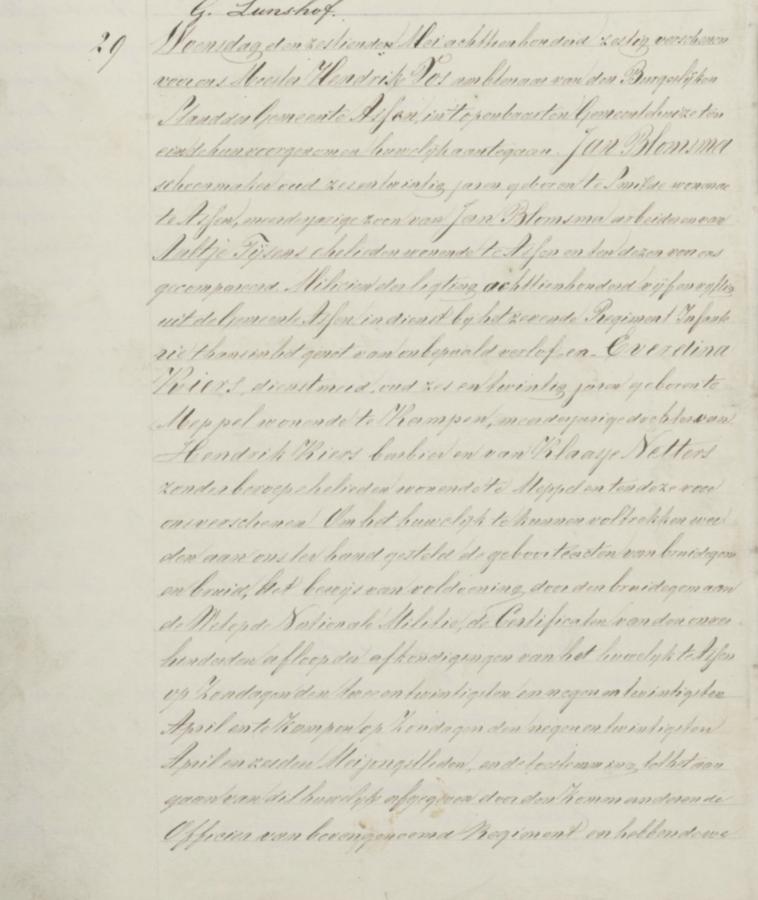 G. Lunshof.
29 Woensdag den zestienden Mei achttienhonderd zestig, verschenen
voor ons Meester Hendrik Vos ambtenaar van den Burgerlijken
Stand der Gemeente Assen, in 't openbaar ten Gemeentehuize ten
einde hun voorgenomen huwelijk aantegaan. Jan Blomsma
schoenmaker oud zes en twintig jaren geboren te Smilde wonende
te Assen, meerderjarige zoon van Jan Blomsma arbeider en van
Aaltje Tijsens ehelieden wonende te Assen en ten dezen voor ons
gecompareerd Milicien der ligting achttienhonderd vijf en vijftig
uit de Gemeente Assen in dienst bij het zevende Regiment Infante
rie thans in het genot van onbepaald verlof, en Everdina
Kiers, dienstmeid, oud zes en twintig jaren geboren te
Meppel wonende te Kampen, meerderjarige dochter van
Hendrik Kiers barbier en van Klaasje Netters
zonder beroep ehelieden wonende te Meppel en ten deze voor
ons verschenen. Om het huwelijk te kunnen voltrekken wer
den aan ons ter hand gesteld de geboorteacten van bruidegom
en bruid, het bewijs van voldoening door den bruidegom aan
de Wet op de Nationale Militie, de Certificaten van den onver
hinderden afloop der afkondigingen van het huwelijk te Assen
op Zondagen den twee en twintigsten en negen en twintigsten
April en te Kampen op Zondagen den negen en twintigsten
April en zesden Mei jongstleden, en de toestemming tot het aan
gaan van dit huwelijk afgegeven door den Kommanderende
Officier van bovengenoemd Regiment en hebbende we